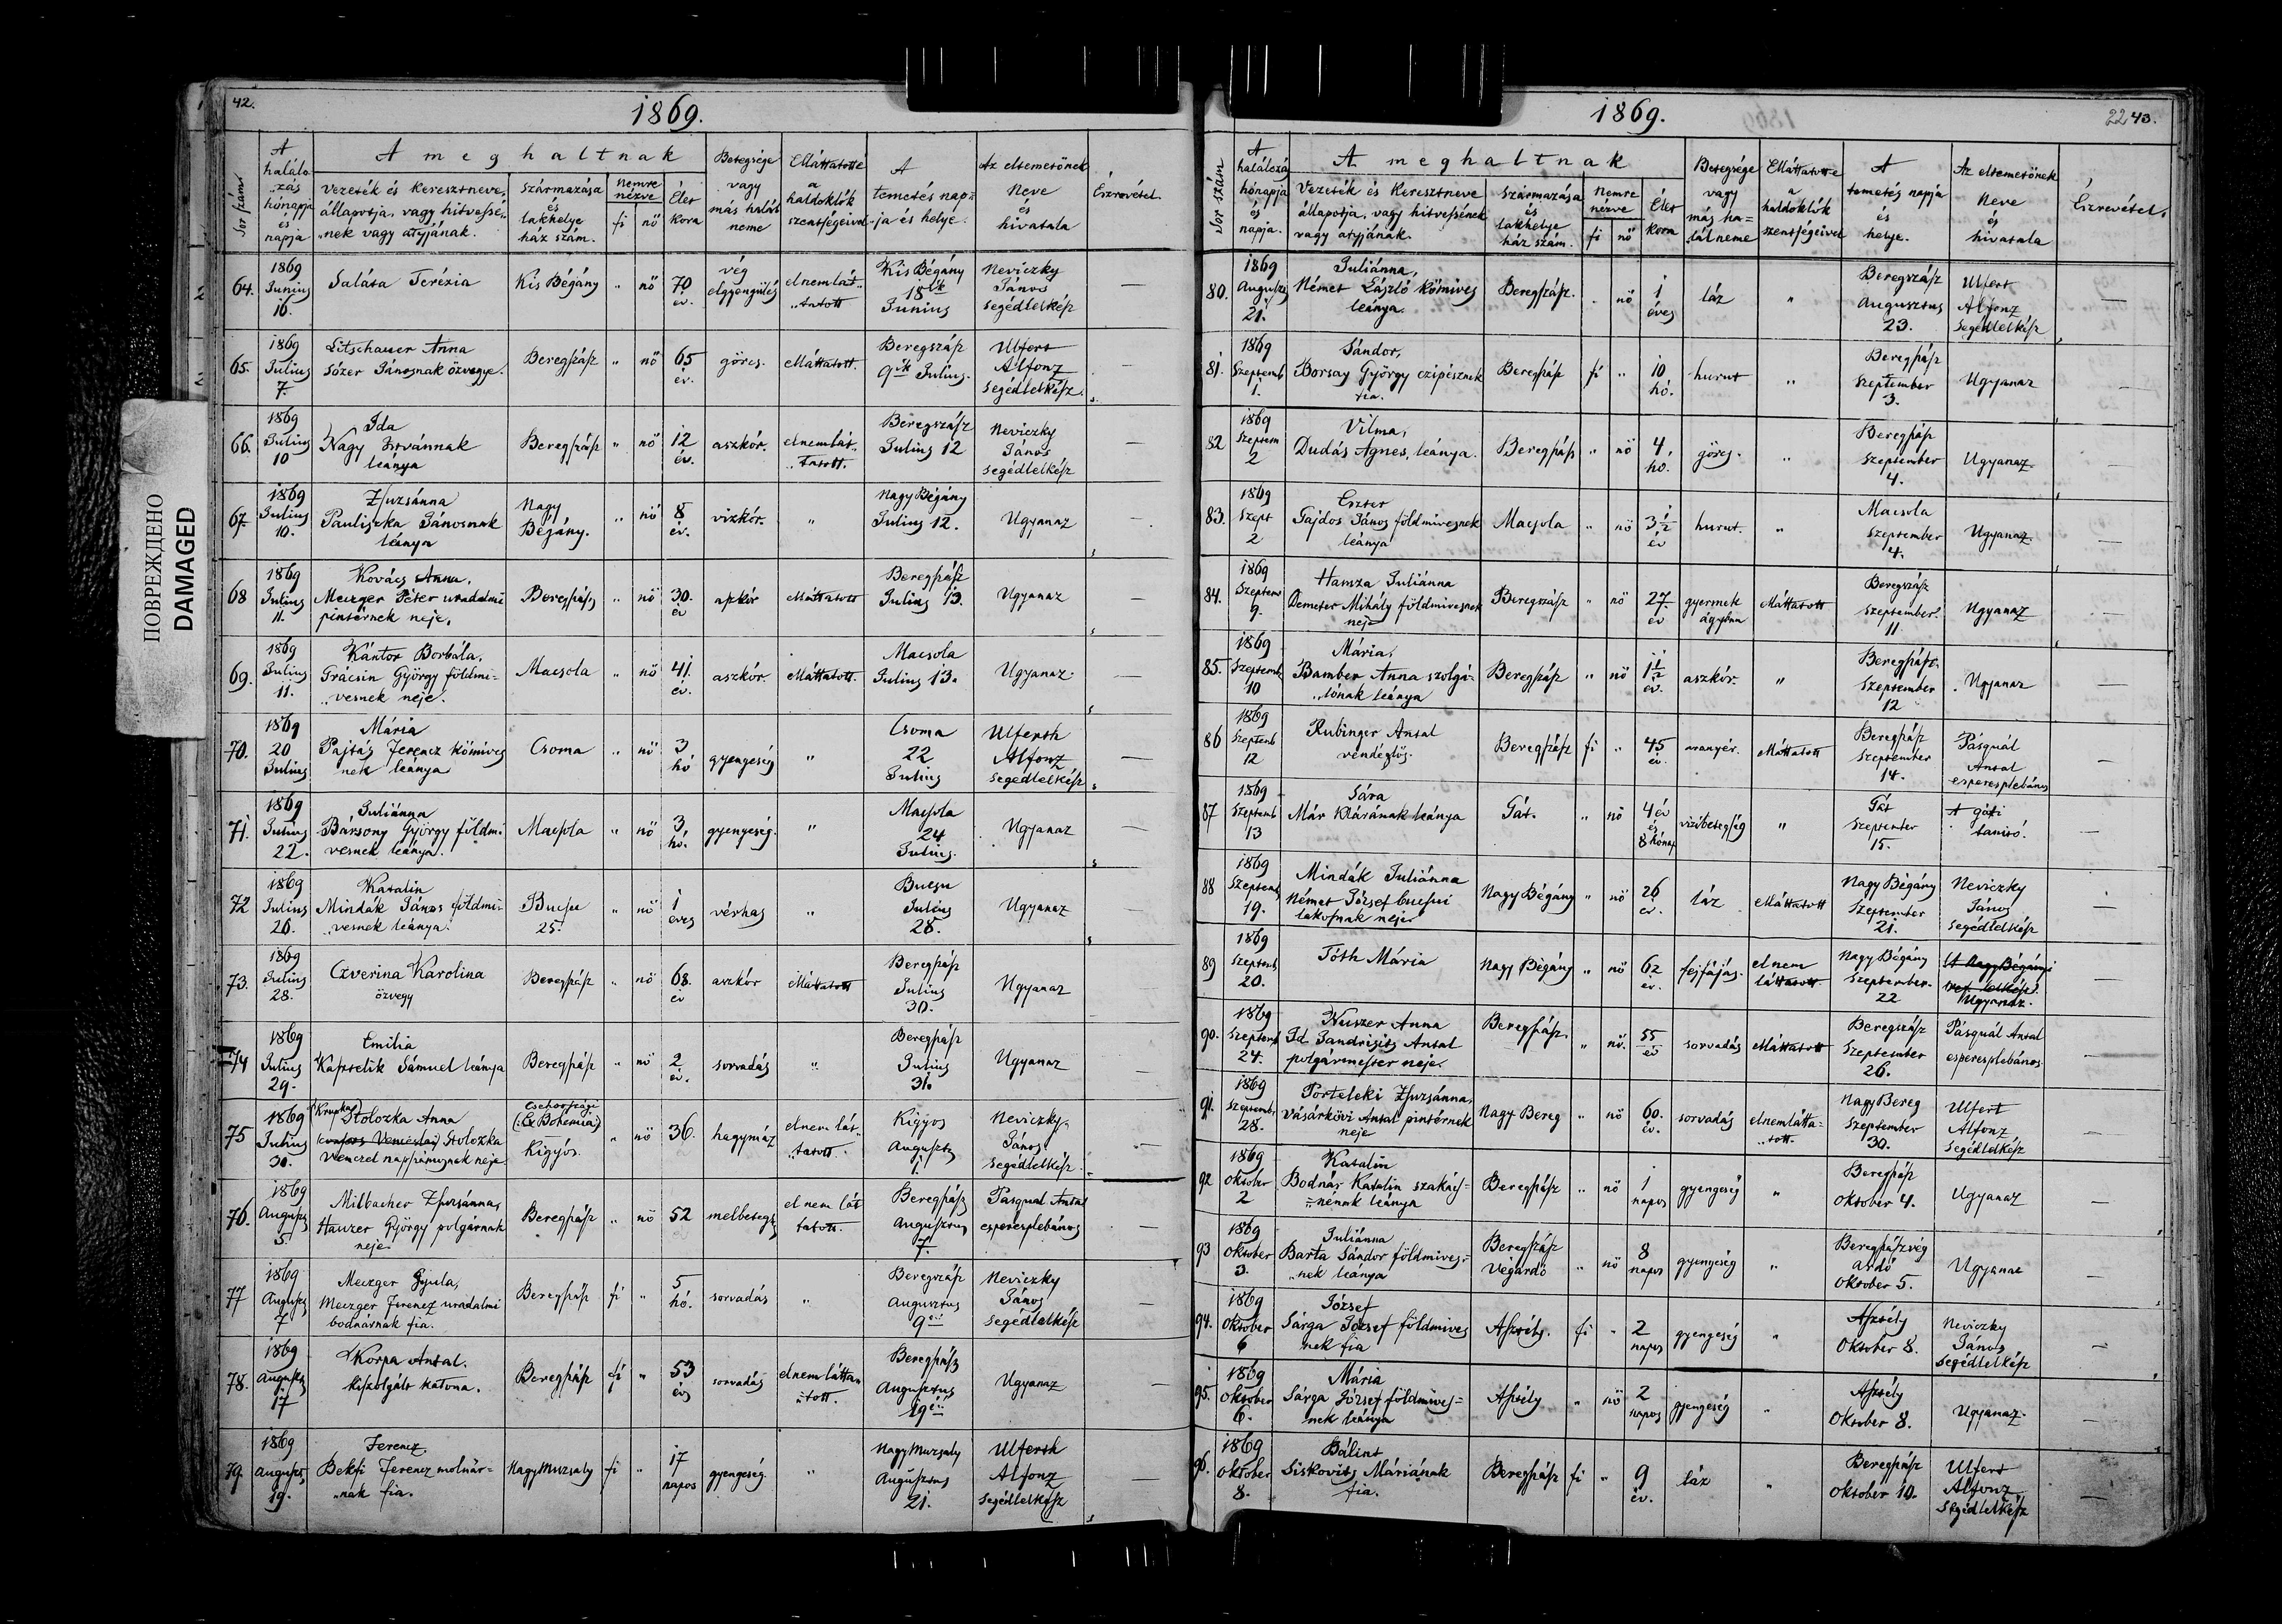 42.
1869.
Sor szám
A halálozás hónapja és napja
A meghaltnak
vezeték és keresztneve, állapotja, vagy hitvessé-
nek vagy atyjának.
Származása és lakhelye ház szám.
Nemre nézve
fi
nö
Élet kora
Betegsége vagy más halál neme
Elláttatotté a haldoklók szentségeivel
A temetés nap-
ja és helye.
Az eltemetönek Neve és hivatala
Észrevétel.
64.
1869 Junius 16.
Salása Terézia
Kis Bégány
" nö
70 év.
vég elgyengülés
elnemlát-
tatott
Kis Bégány 18ik Junius
Neviczky János segédlelkész
—
65.
1869 Julius 7.
Litschauer Anna
Sózer Jánosnak özvegye.
Beregszász
" nö
65 év.
görcs.
elláttatott.
Beregszász 9ik Julius.
Ulfert Alfonz segédlelkész.
66.
1869 Julius 10
Ida
Nagy Istvánnak
leánya
Beregszász
" nö
12 év.
aszkór.
elnemlát-
tatott.
Beregszász Julius 12
Neviczky János segédlelkész
67.
1869 Julius 10.
Zsuzsánna
Pauliszka Jánosnak
leánya
Nagy Bégány.
" nö
8 év.
vizkór.
"
Nagy Bégány Julius 12.
Ugyanaz
68
1869 Julius 11.
Kovács Anna,
Meczger Péter uradalmi
pintérnek neje,
Beregszász
" nö
30. év
aszkór
elláttatott
Beregszász Julius 13.
Ugyanaz
69.
1869 Julius 11.
Kántor Borbála,
Grácsin György földmi-
vesnek neje.
Macsola
" nö
41. év.
aszkór
elláttatott.
Macsola Julius 13.
Ugyanaz
70.
1869 20 Julius
Mária
Pajtás Ferencz kömives
nek leánya
Csoma
" nö
3 hó
gyengeség
"
Csoma 22 Julius
Ulferth Alfonz segédlelkész
71.
1869 Julius 22.
Juliánna
Bársony György földmi
vesnek leánya.
Macsola
" nö
3, hó.
gyengeség.
"
Macsola 24 Julius.
Ugyanaz
72
1869 Julius 26.
Katalin
Mindák János földmi-
vesnek leánya.
Bucsu 25.
" nö
1 eves
vérhas
"
Bucsu Julius 28.
Ugyanaz
73.
1869 Julius 28.
Czverina Karolina
özvegy
Beregszász
" nö
68. év
aszkór
elláttatott
Beregszász Julius 30.
Ugyanaz
74
1869 Julius 29.
Emilia
Kapsselik Sámuel leánya
Beregszász
" nö
2 év.
sorvadás
"
Beregszász Julius 31.
Ugyanaz
75
1869 Julius 30.
(Krupkas) Stolozka Anna
Stolozka
Venczel napszámosnak neje.
Csehországi (: Ex Bohemia :) Kigyós.
" nö
36.
hagymáz
elnem lát-
tatott.
Kigyos Augusztus 1.
Neviczky János Segédlelkész.
76.
1869 Auguszt 5.
Milbacher Zsuzsánna,
Hauzer György polgárnak
neje.
Beregszász
" nö
52
melbetegs.
elnem lát
tatott.
Beregszász Augusztus 7.
Pásqual Antal esperesplebános
77
1869 Auguszt 7
Meczger Gyula,
Meczger Ferencz uradalmi
bodnárnak fia.
Beregszász
fi "
5 hó.
sorvadás
"
Beregszász Augusztus 9én
Neviczky János segédlelkész
78.
1869 Auguszt 17
Korpa Antal.
kiszolgált katona.
Beregszász
fi "
53 éves
sorvadás
elnemláttat-
tott.
Beregszász Augusztus 19én
Ugyanaz
79.
1869 Auguszt. 19.
Ferencz.
Bekfi Ferencz molnár-
nak fia.
NagyMuzsaly
fi "
17 napos
gyengeség.
"
Nagy Muzsaly Augusztus 21.
Ulferth Alfonz segédlelkész
1869.
22 43.
Sor szám
A halálozás hónapja és napja.
A meghaltnak
Vezeték és keresztneve állapotja, vagy hitvessének vagy atyjának.
Származása és lakhelye ház szám.
Nemre nézve
fi
nö
Élet kora
Betegsége vagy más ha-
lál neme
Elláttatotte a haldoklók szentségeivel
A temetés napja és helye.
Az eltemetönek Neve és hivatala
Észrevétel.
80.
1869 Auguszt 21.
Juliánna,
Német László kömives
leánya.
Beregszász.
" nö
1 éves
láz
"
Beregszász Augusztus 23.
Ulfert Alfonz segédlelkész
81.
1869 Szeptemb 1.
Sándor,
Borsay György czipésznek
fia.
Beregszász
fi "
10 hó.
hurut
"
Beregszász Szeptember 3.
Ugyanaz
82
1869 Szeptem 2
Vilma,
Dudás Agnes, leánya.
Beregszász
" nö
4, hó.
görcs.
"
Beregszász Szeptember 4.
Ugyanaz
83.
1869 Szept 2
Eszter
Gajdos János földmivesnek
leánya
Macsola
" nö
3 1/2 év
hurut.
"
Macsola Szeptember 4.
Ugyanaz
84.
1869 Szeptem 9.
Hamza Juliánna
Demeter Mihály földmivesnek
neje
Beregszász
" nö
27 év
gyermek ágyban
elláttatott
Beregszász Szeptember 11
Ugyanaz
85.
1869 Szeptemb. 10
Mária,
Bamber Anna szolgá-
lónak leánya
Beregszász
" nö
1 1/2 év.
aszkór.
"
Beregszász Szeptember 12
Ugyanaz
86
1869 Szeptemb 12
Rubinger Antal
vendéglös.
Beregszász
fi "
45 év.
aranyér.
elláttatott
Beregszász Szeptember 14.
Pásquál Antal esperesplebános
87
1869 Szeptemb 13
Sára
Már Klárának leánya
Gát.
" nö
4 év és 8 hónap
vizibetegség
"
Gát Szeptember 15.
A gáti tanitó.
88
1869 Szeptemb 19.
Mindák Juliánna
Német József bucsui
lakosnak neje.
Nagy Bégány
" nö
26 év.
láz
elláttatott
Nagy Bégány Szeptember 21.
Neviczky János segédlelkész
89
1869 Szeptemb. 20.
Tóth Mária
Nagy Bégány
" nö
62 év.
fejfájás.
elnem láttatott.
Nagy Bégány Szeptember. 22
A Nagy Bégányi ref. lelkész.
Ugyanaz.
90.
1869 Szeptemb 24.
Wuszer Anna
Id Jandrisits Antal
polgármester neje.
Beregszász.
" nö.
55 év
sorvadás
elláttatott
Beregszász Szeptember 26.
Pásquál Antal esperesplebános
91.
1869 Szeptemb. 28.
Porteleki Zsuzsánna,
Vásárkövi Antal pintérnek
neje
Nagy Bereg
" nö
60. év.
sorvadás
elnemlátta-
tott.
Nagy Bereg Szeptember 30.
Ulfert Alfonz Segédlelkész
92
1869 Oktober 2
Katalin
Bodnár Katalin szakács-
nénak leánya
Beregszász
" nö
1 napos
gyengeség
"
Beregszász Oktober 4.
Ugyanaz
93
1869 Oktober 3.
Juliánna
Barta Sándor földmives-
nek leánya
Beregszász Végardó
" nö
8 napos
gyengeség
"
Beregszászvég ardó Oktober 5.
Ugyanaz
94.
1869 Oktober 6
József
Sárga József földmives
nek fia
Aszély.
fi "
2 napos
gyengeség
"
Aszély Oktober 8.
Neviczky János Segédlelkész
95.
1869 Oktober 6.
Mária
Sárga József földmives-
nek leánya
Aszély
" nö
2 napos
gyengeség
"
Aszély Oktober 8.
Ugyanaz.
96.
1869 Oktober 8.
Bálint
Siskovits Máriának
fia.
Beregszász
fi "
9 év.
láz
"
Beregszász Oktober 10.
Ulfert Alfonz Segédlelkész
ПОВРЕЖДЕНО
DAMAGED